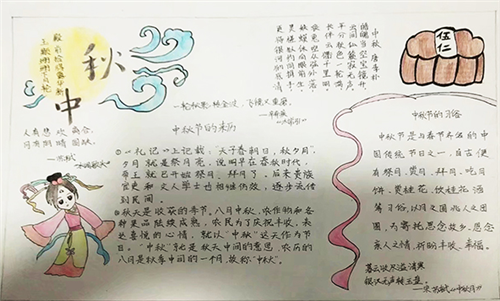 中秋
人有悲欢离合，
月有阴晴圆缺。
中秋节的来历
《礼记》上记载，“天子春朝日，秋夕月”。
夕月就是祭月亮，说明早在春秋时代，
帝王就已开始祭月、拜月了，后来贵族
官吏和文人学士也相继仿效，逐步流传
到民间。
秋天是收获的季节，八月中秋，农作物和各
种果品陆续成熟，农民为了庆祝丰收，表
达喜悦的心情，就以“中秋”这天作为节
日。“中秋”就是秋天中间的意思，农历的
八月是秋季中间的一个月，故称“中秋”。
伍仁
中秋节的习俗
中秋节是与春节齐名的中
国传统节日之一，自古便
有祭月、赏月、拜月、吃月
饼、赏桂花、饮桂花酒
等习俗，以月之圆兆人之团
圆，为寄托思念故乡、思念
亲人之情，祈盼丰收、幸福。
暮云收尽溢清寒
银汉无声转玉盘。